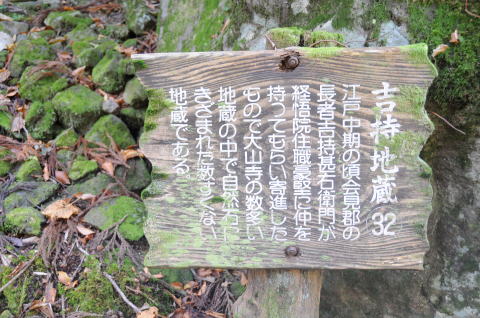 吉持地蔵 32
江戸中期の頃会見郡の
長者吉持甚右衛門が
経悟院住職豪堅に仲を
持ってもらい寄進した
もので大山寺の数多い
地蔵の中で自然石に
きざまれた数少くない
地蔵である